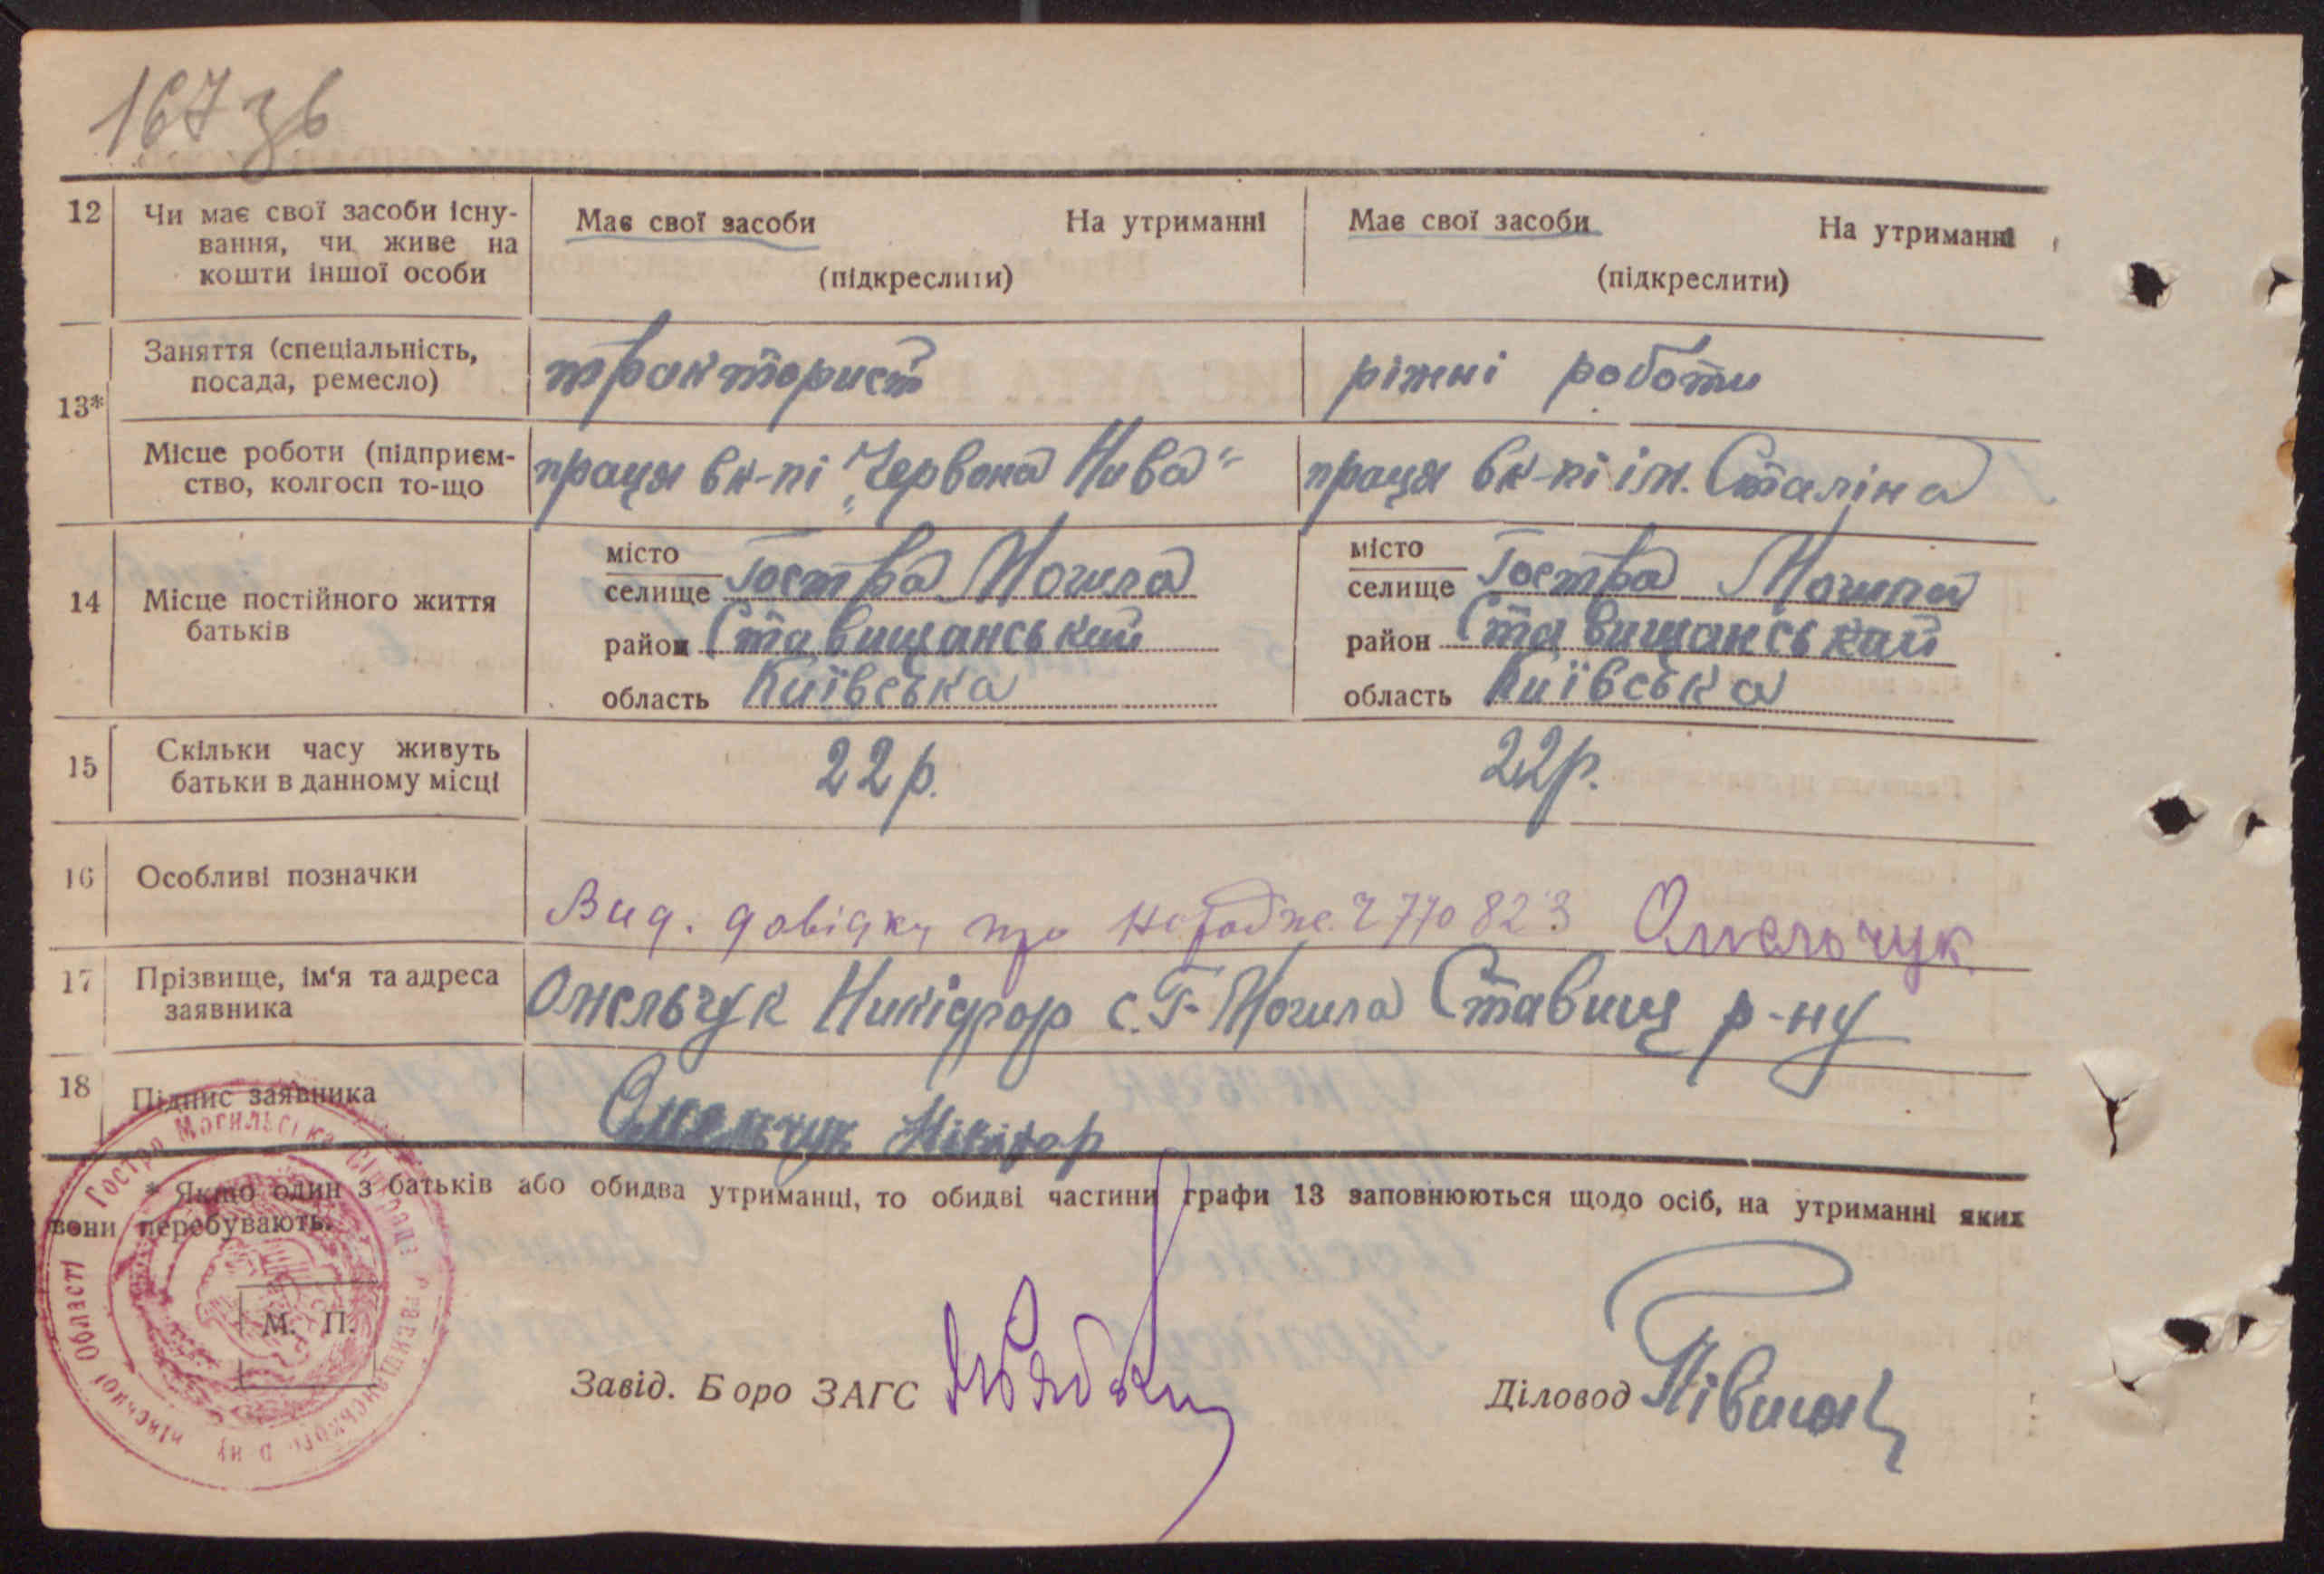 167 зв
12 Чи має свої засоби існу- Має свої засоби На утриманні Має свої засоби На утриманні
вання, чи живе на
кошти іншої особи (підкреслити) (підкреслити)
Заняття (спеціальність, тракторист ріжні роботи
посада, ремесло)
13*
Місце роботи (підприєм- праця в к-пі „Червона Нива" праця в к-пі ім. Сталіна
ство, колгосп то-що
місто місто
селище Гостра Могила селище Гостра Могила
14 Місце постійного життя
батьків
район Ставищанський район Ставищанський
область Київська область Київська
15 Скільки часу живуть 22 р. 22 р.
батьки в данному місці
16 Особливі позначки
Вид. довідку про народже. 2770823 Омельчук
17 Прізвище, ім'я та адреса Омельчук Никіфор с. Г-Могила Ставищ р-ну
заявника
18 Підпис заявника Омельчук Нікіфор
* Якщо один з батьків або обидва утриманці, то обидві частини графи 13 заповнюються щодо осіб, на утриманні яких
вони перебувають.
Гостро Могильська Сільрада Ставищанського р ну Київської Області
М. П.
Завід. Бюро ЗАГС
Діловод